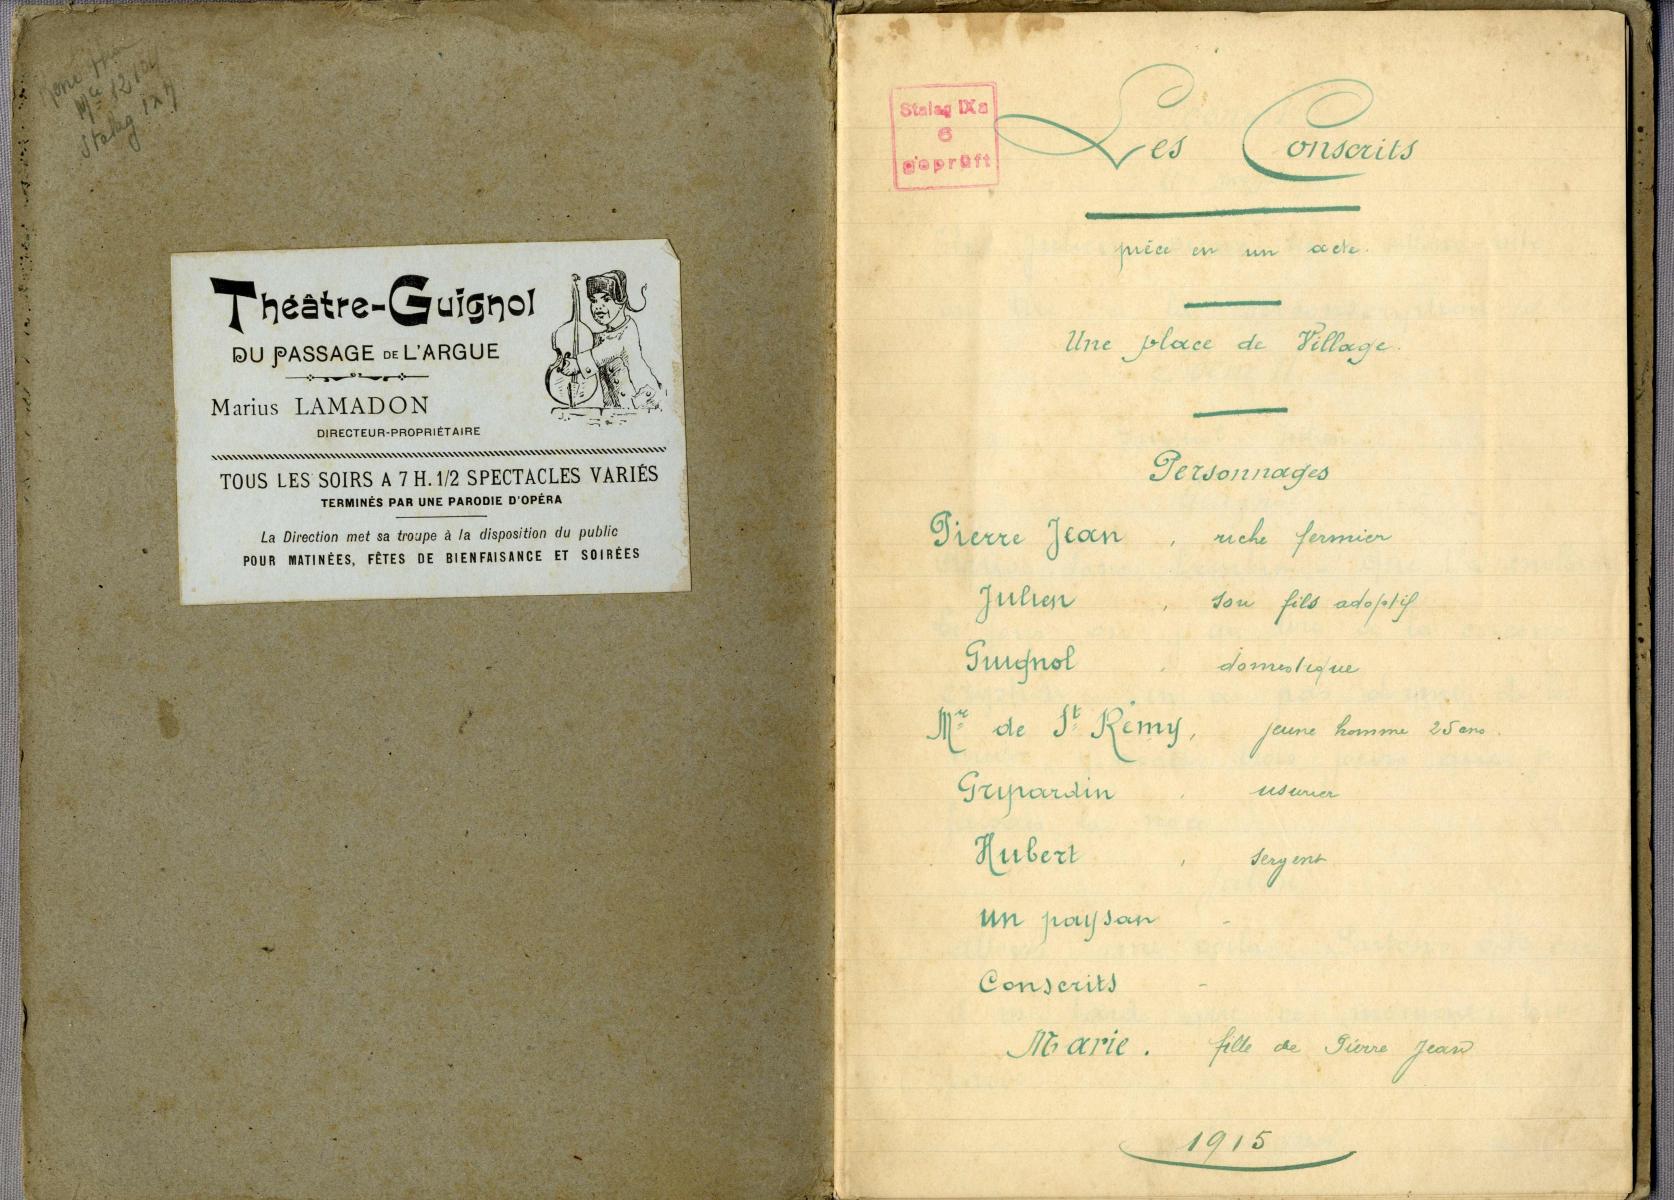 Stalag IX A
Théâtre-Guignol
DU PASSAGE DE L'ARGUE
Marius LAMADON
DIRECTEUR-PROPRIÉTAIRE
TOUS LES SOIRS A 7 H. 1/2 SPECTACLES VARIÉS
TERMINÉS PAR UNE PARODIE D'OPÉRA
La Direction met sa troupe à la disposition du public
POUR MATINÉES, FÊTES DE BIENFAISANCE ET SOIRÉES
Stalag IXa
6
geprüft
Les Conscrits
pièce en un acte.
Une place de Village.
Personnages
Pierre Jean, riche fermier
Julien, son fils adoptif
Guignol, domestique
Mr de St Rémy, jeune homme 25 ans.
Gripardin, usurier
Hubert, sergent
un paysan -
Conscrits -
Marie. fille de Pierre Jean
1915